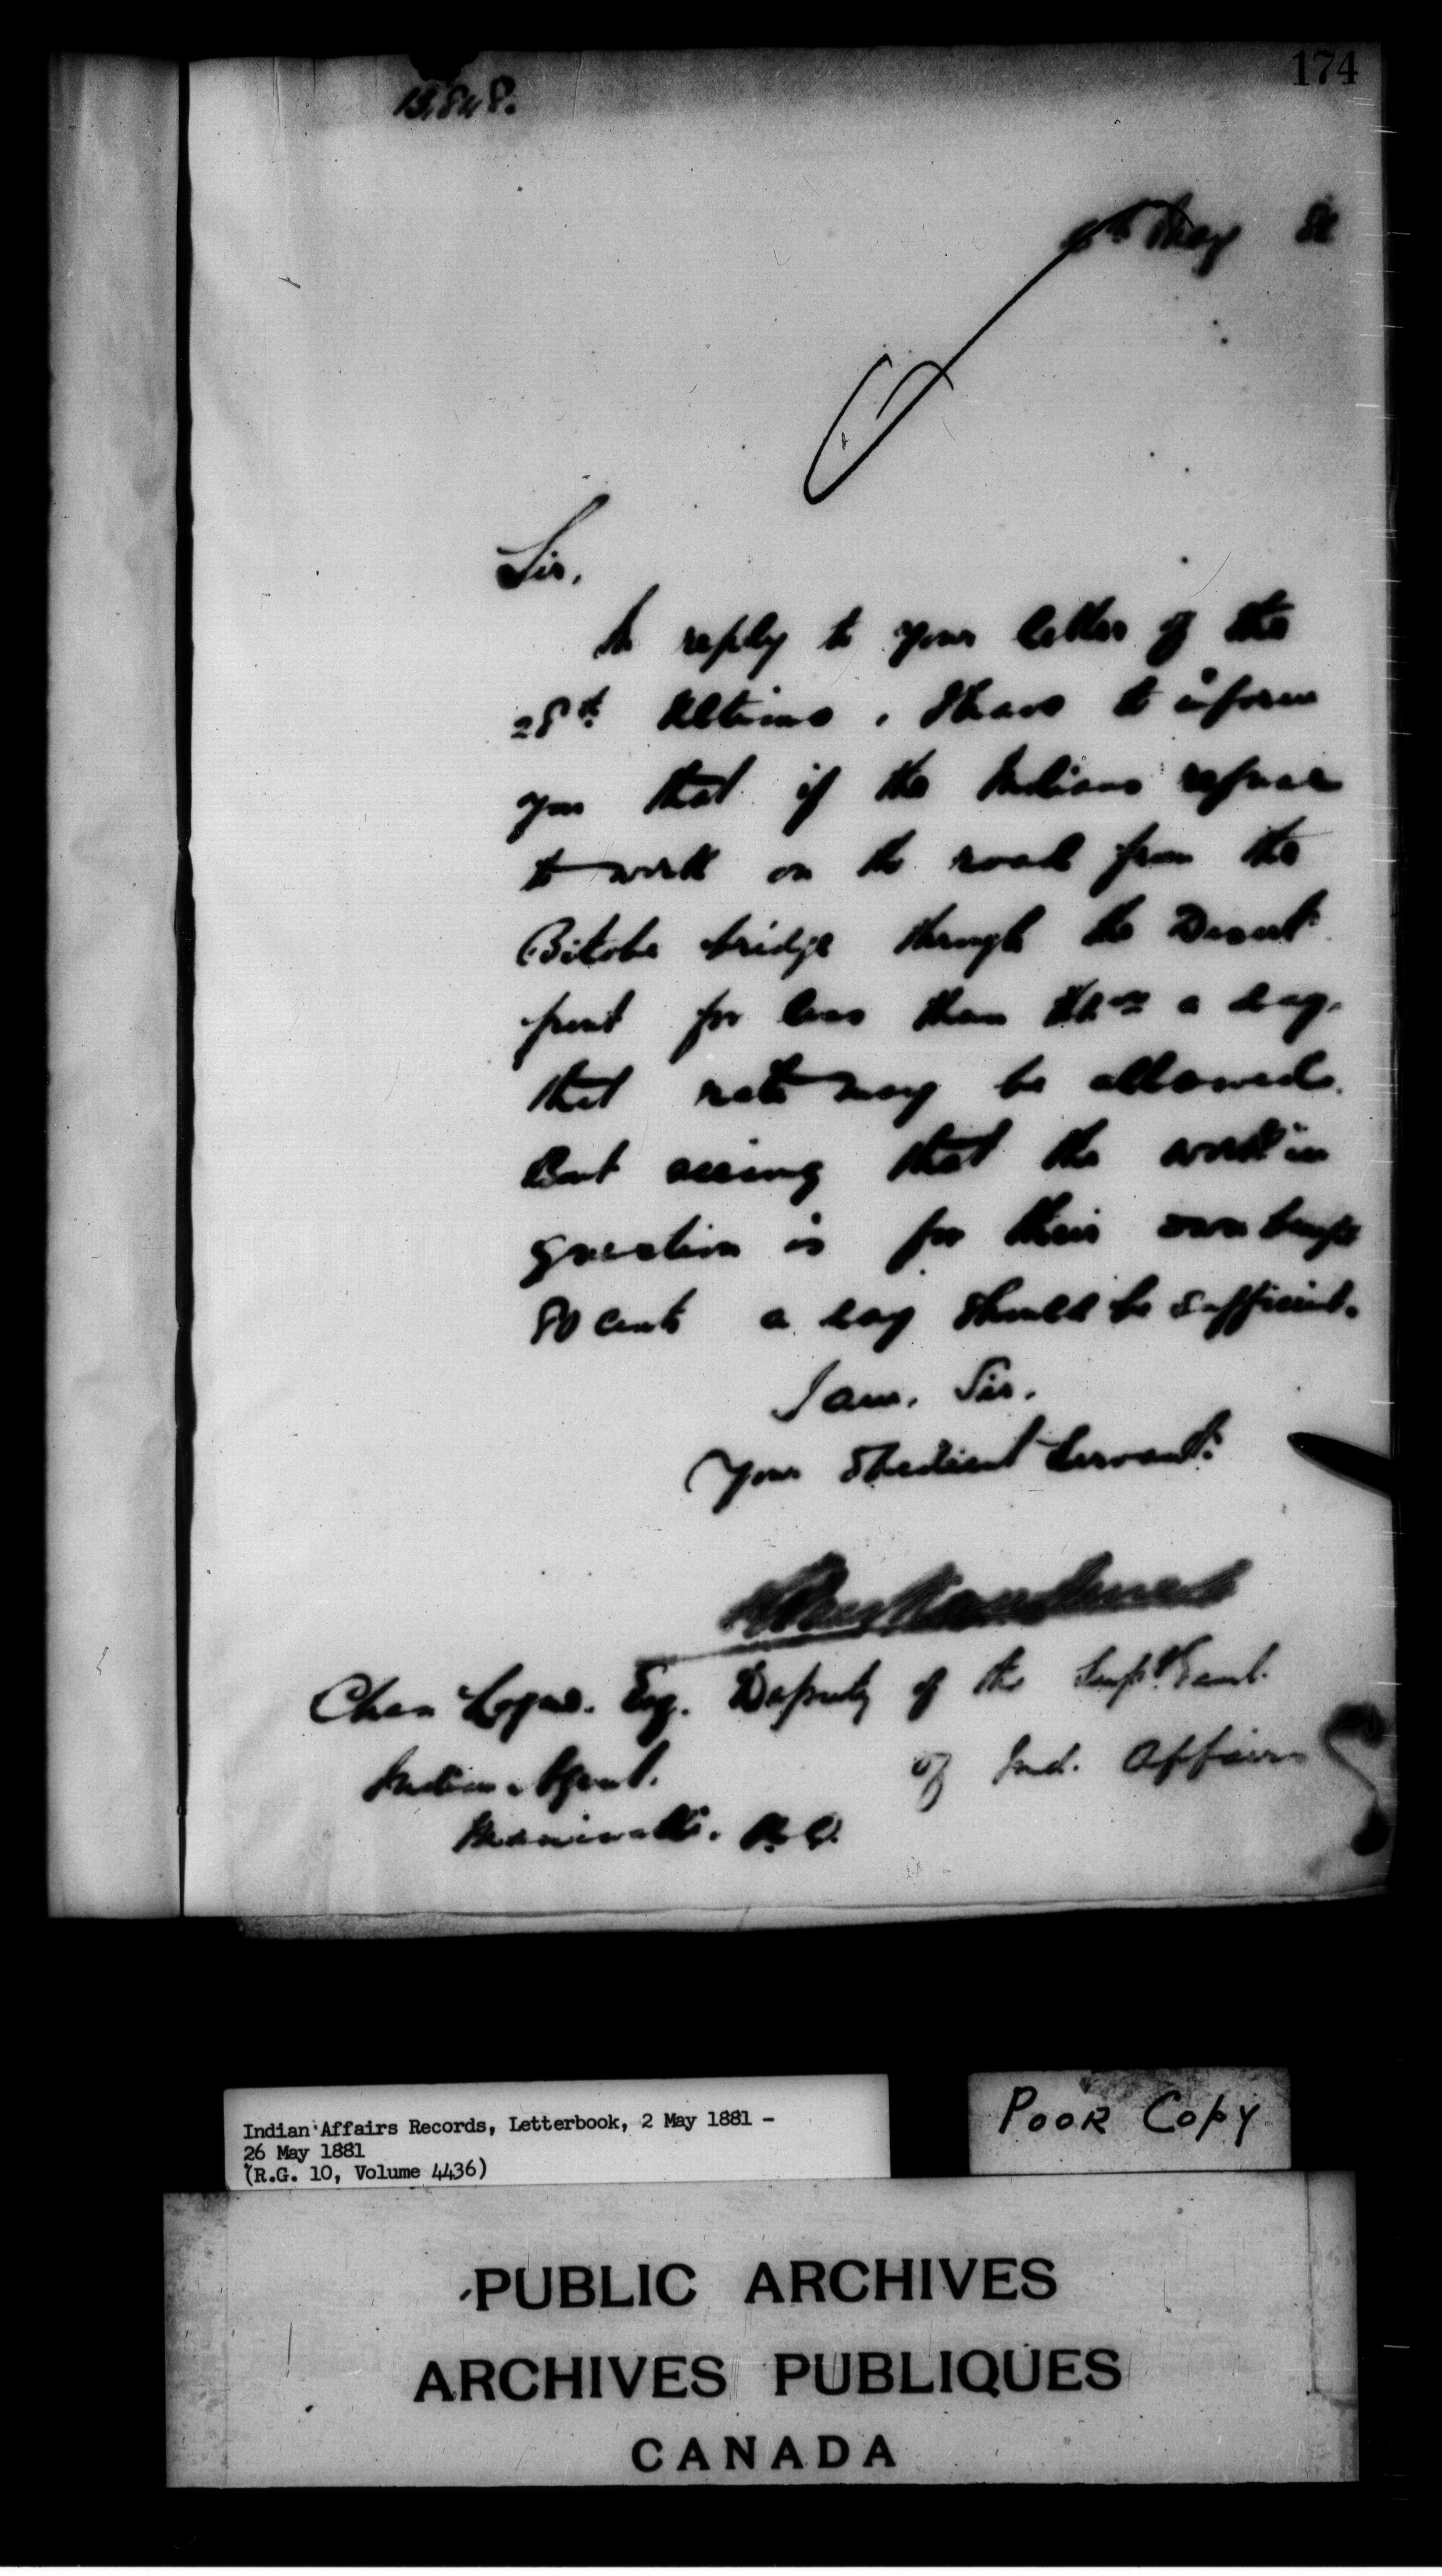 174
Sir,
In reply to your letter of the
28th Ultimo, I have to inform
you that if the Indians refuse
to work on the road from the
Bitobe bridge through the Desert
front for less than a day,
that rate may be allowed.
But seeing that the work in
question is for their own benefit
80 cents a day should be sufficient.
I am, Sir,
Your obedient Servant.
Chas Logue. Esq. Deputy of the Supt. Genl.
Indian Agent. of Ind. Affairs
Maniwaki. P.Q.
Indian Affairs Records, Letterbook, 2 May 1881 -
26 May 1881
(R.G. 10, Volume 4436)
POOR COPY
PUBLIC ARCHIVES
ARCHIVES PUBLIQUES
CANADA